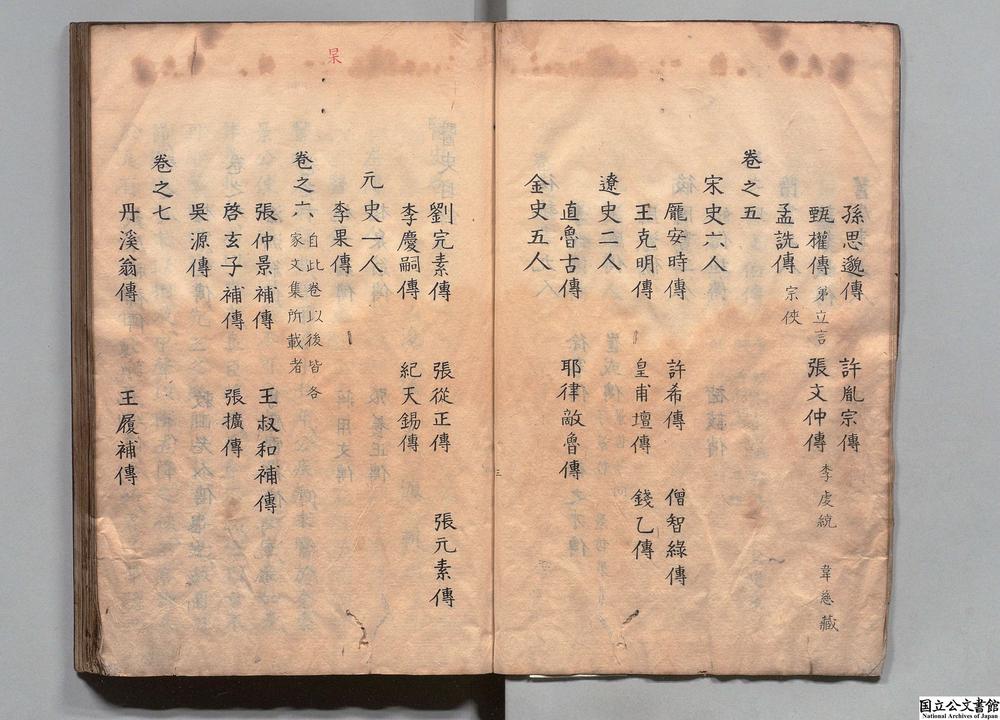 孫思邈傳 許胤宗傳
甄權傳 弟立言 張文仲傳 李虔縱 韋慈藏
孟詵傳 宗俠
卷之五
宋史六人
龐安時傳 許希傳 僧智緣傳
王克明傳 皇甫壇傳 錢乙傳
遼史二人
直魯古傳 耶律敵魯傳
金史五人
劉完素傳 張從正傳 張元素傳
李慶嗣傳 紀天錫傳
元史一人
李杲傳
卷之六 自此卷以後皆各
家文集所載者
張仲景補傳 王叔和補傳
啓玄子補傳 張擴傳
吳源傳
卷之七
丹溪翁傳 王履補傳
杲
三
国立公文書館
National Archives of Japan